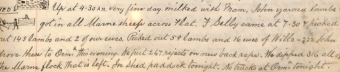 Up at 4-30 AM very fine day milked with Mom, John yarned lambs
got in all Marno sheep across flat. T. Gelly came at 7-30 & picked
out 143 lambs and 2 of our ewes. Picked out 54 lambs & 16 ewes of Wills — John
drove them to Orm this evening. He put 267 rejects on race back rape. He dipped 316 all of
the Marno flock that is left. In shed paddock tonight. He stacks at Orm tonight.